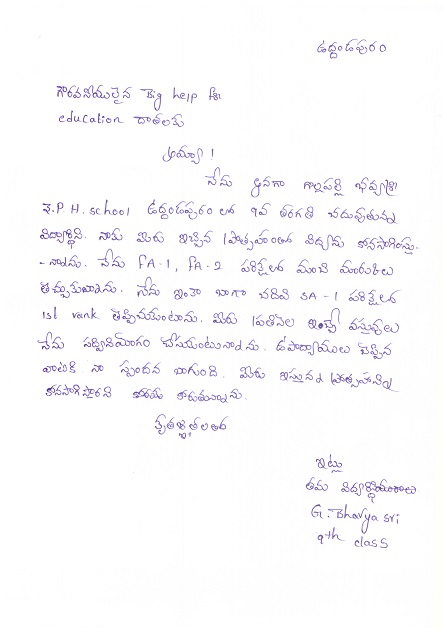 ఉద్దండపురం
గౌరవనీయులైన Big help for
education దాతలకు
అమ్మా!
నేను అనగా గాలపల్లి భవ్యశ్రీ
Z.P.H. school ఉద్దండపురం లో 9వ తరగతి చదువుతున్న
విద్యార్థిని. నాకు మీరు ఇచ్చిన ప్రోత్సాహంతో విద్యను కొనసాగిస్తు-
-న్నాను. నేను FA-1, FA-2 పరీక్షలలో మంచి మార్కులు
తెచ్చుకున్నాను. నేను ఇంకా బాగా చదివి SA-1 పరీక్షలలో
1st rank తెచ్చుకుంటాను. మీరు ప్రతినెల ఇచ్చే వస్తువులు
నేను సద్వినియోగం చేసుకుంటున్నాను. ఉపాధ్యాయులు చెప్పిన
వాటికి నా స్పందన బాగుంది. మీరు ఇస్తున్న ప్రోత్సాహాన్ని
కొనసాగిస్తారని కోరుతున్నాను.
కృతజ్ఞతలతో
ఇట్లు
తమ విద్యార్థినియురాలు
G. Bhavya sri
9th class